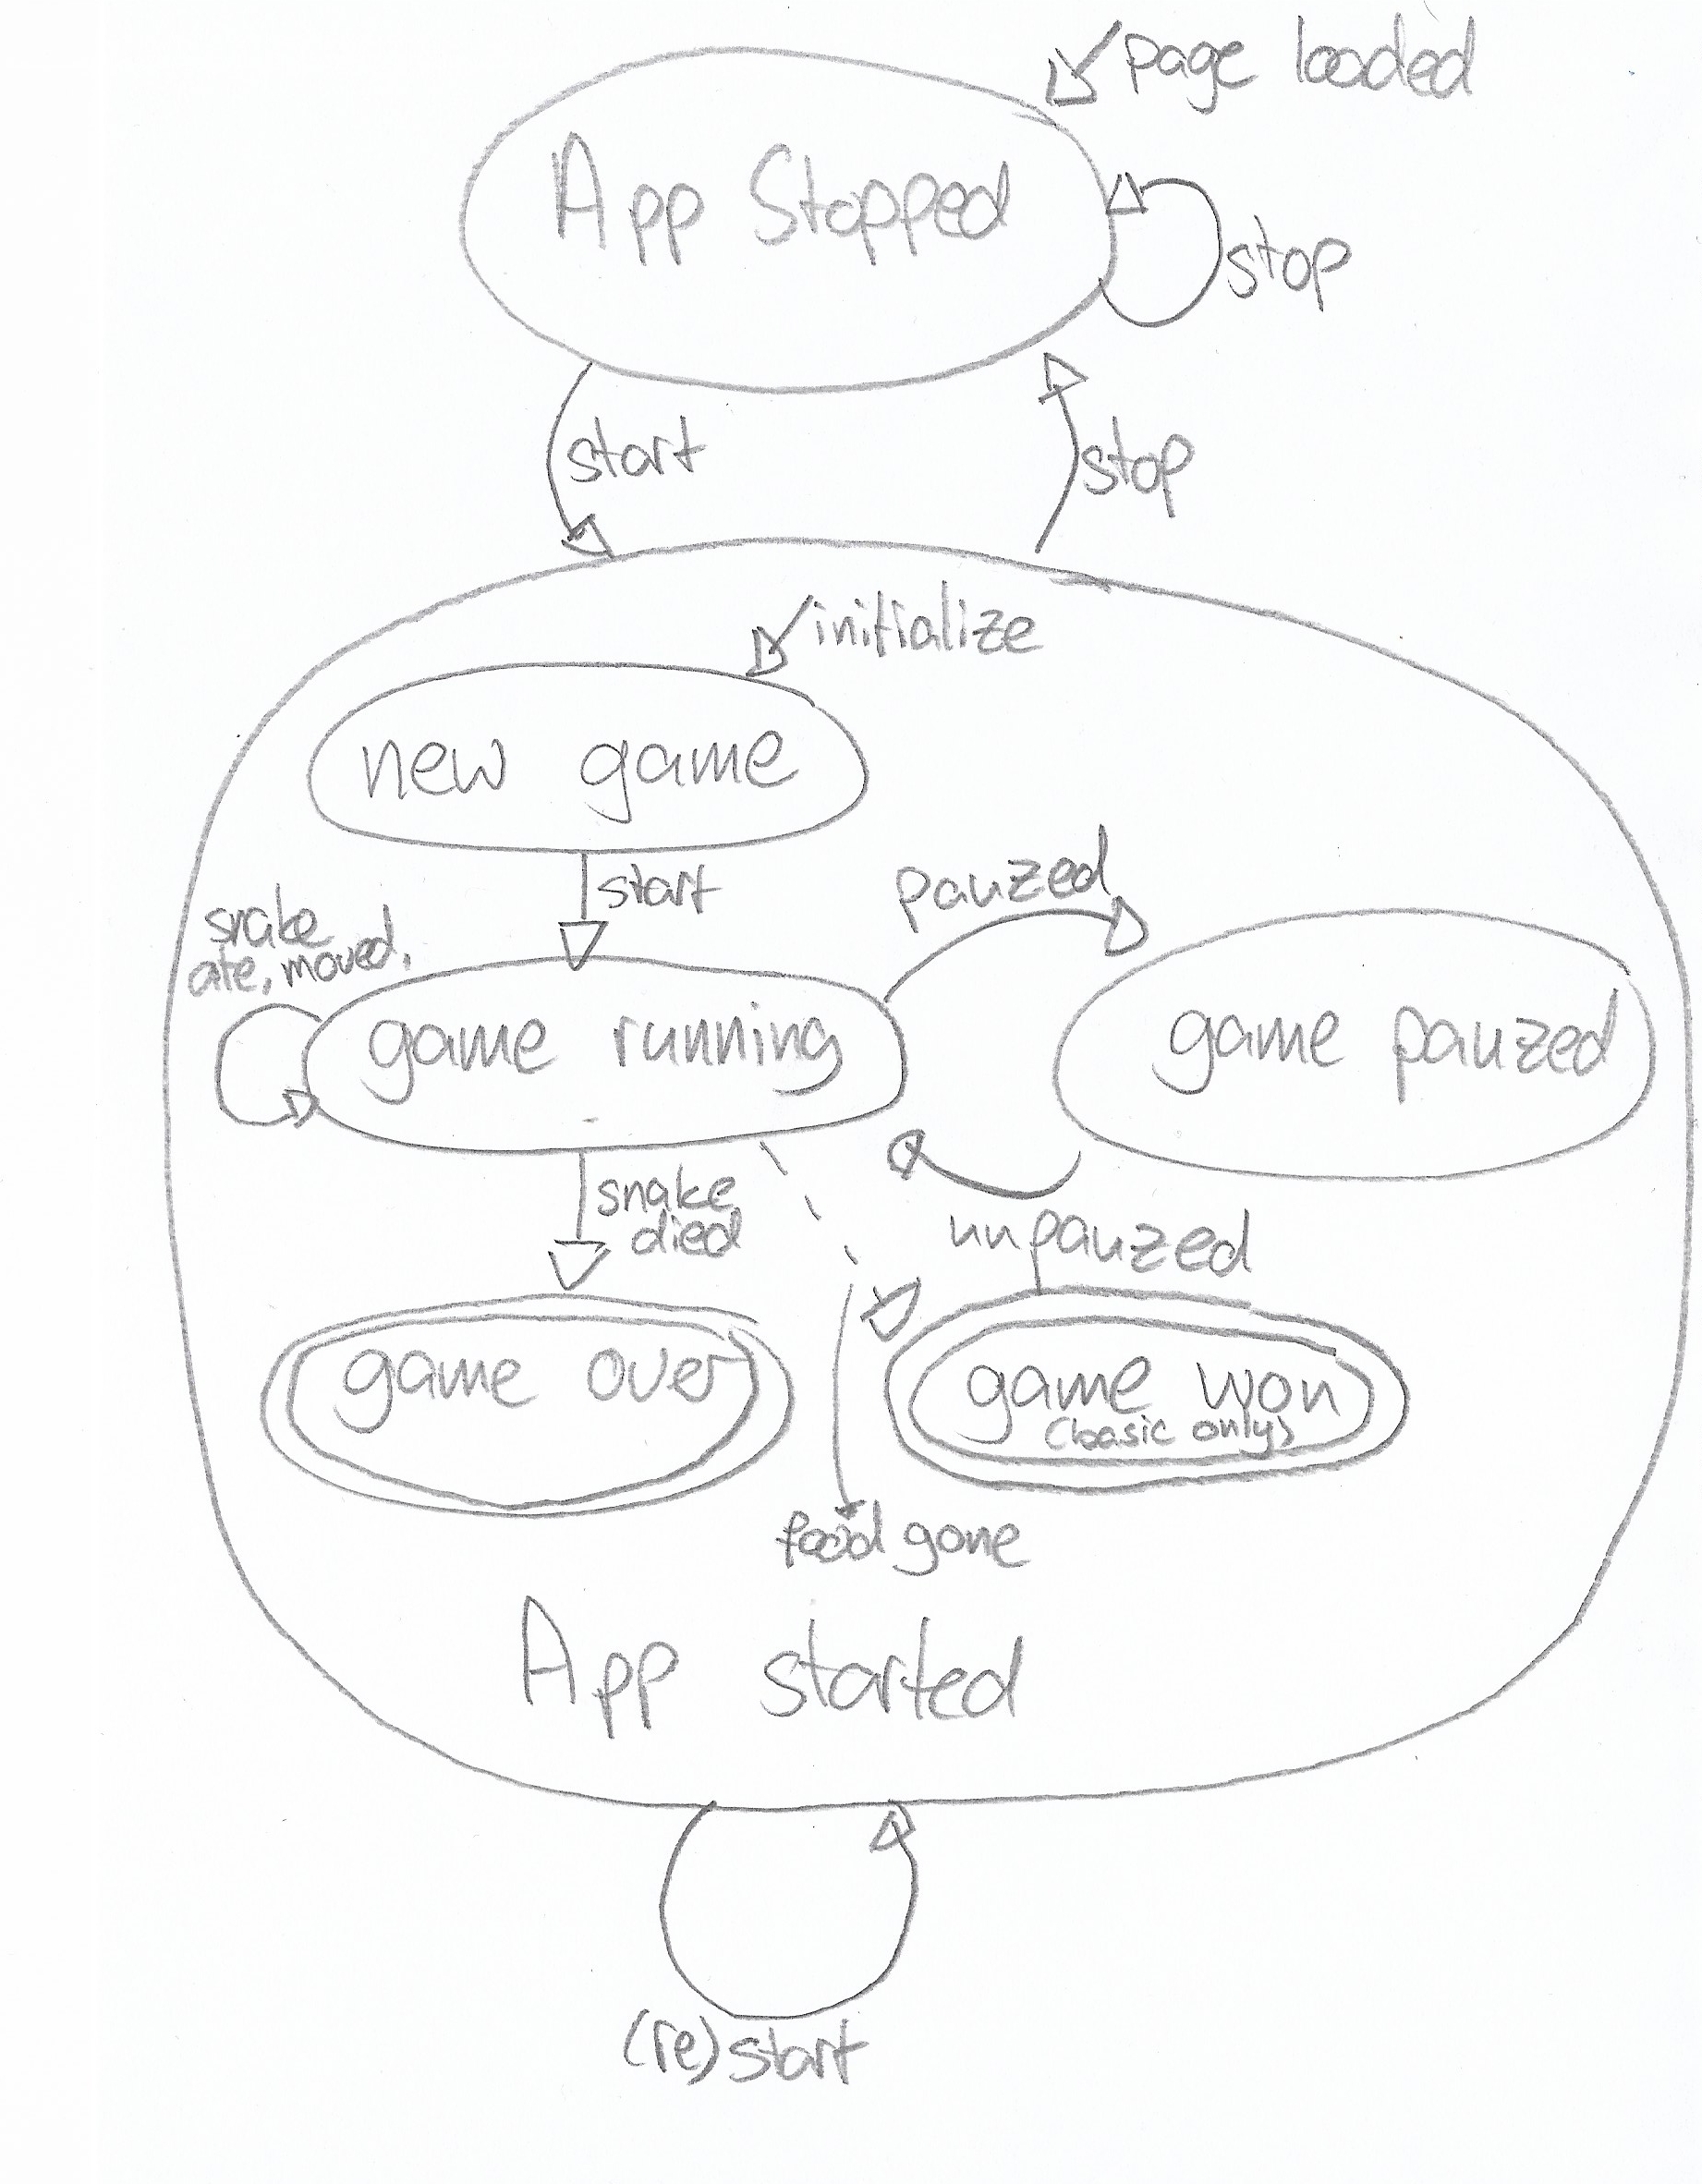 page loaded
App Stopped
stop
start
stop
initialize
new game
start
pauzed
snake
ate, moved,
game running
game pauzed
snake
died
unpauzed
game over
game won
(basic only)
food gone
App started
(re)start